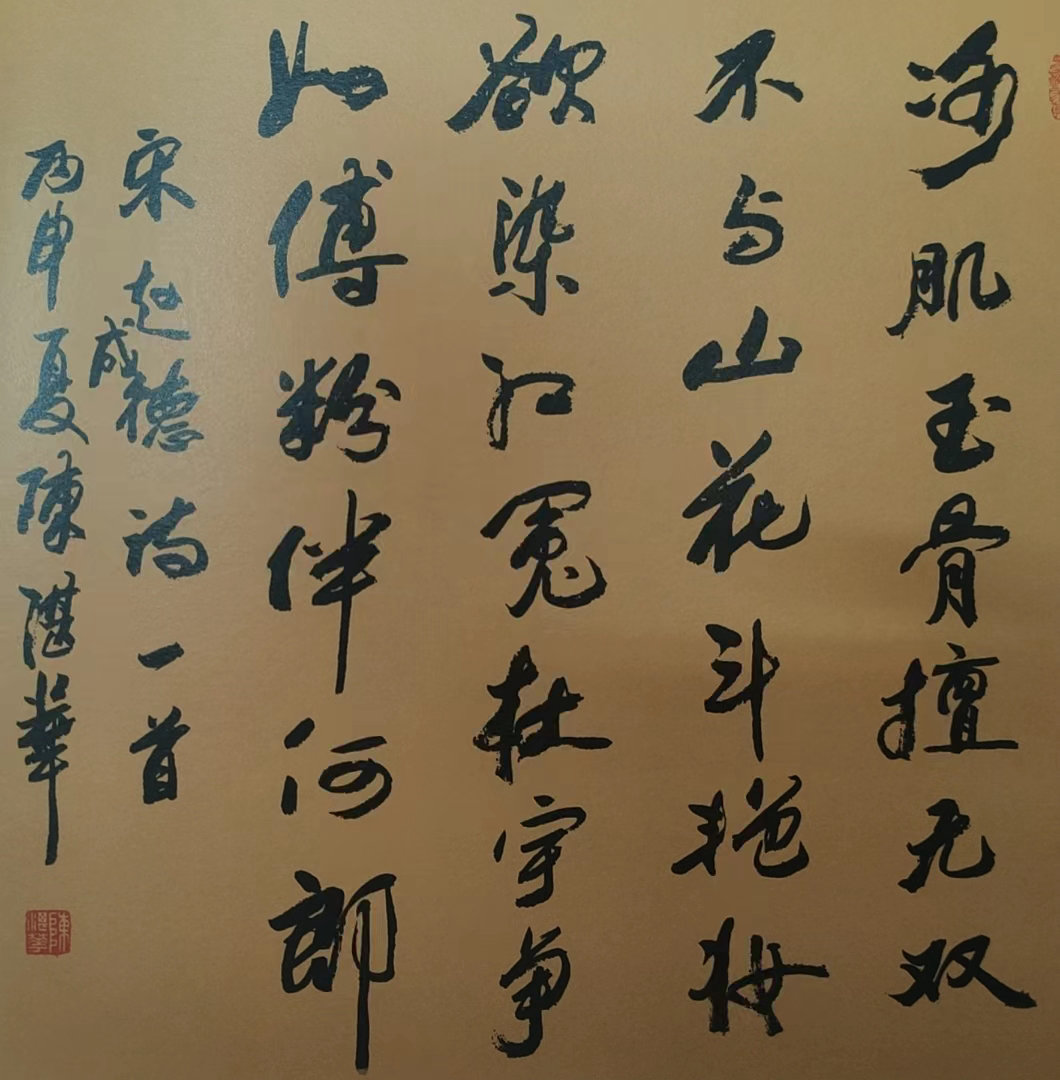 冰肌玉骨擅无双
不与山花斗艳妆
欲染红冤杜宇争
如傅粉伴何郎
宋赵成德诗一首
丙申夏陳湛華